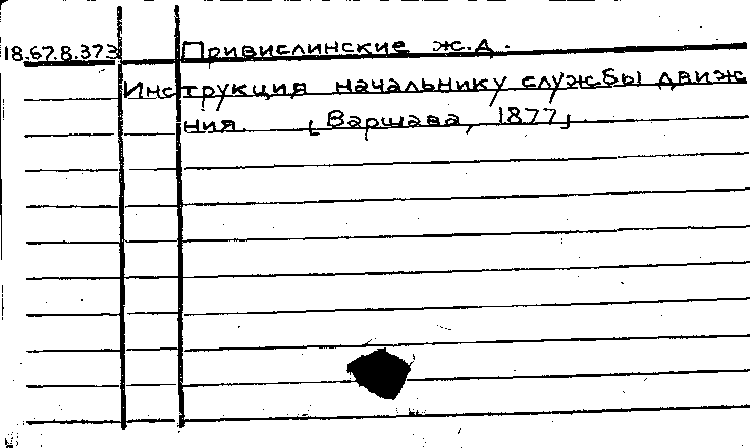 18.67.8.373 Привислинские ж.д.
Инструкция начальнику службы движе
ния. [Варшава, 1877]